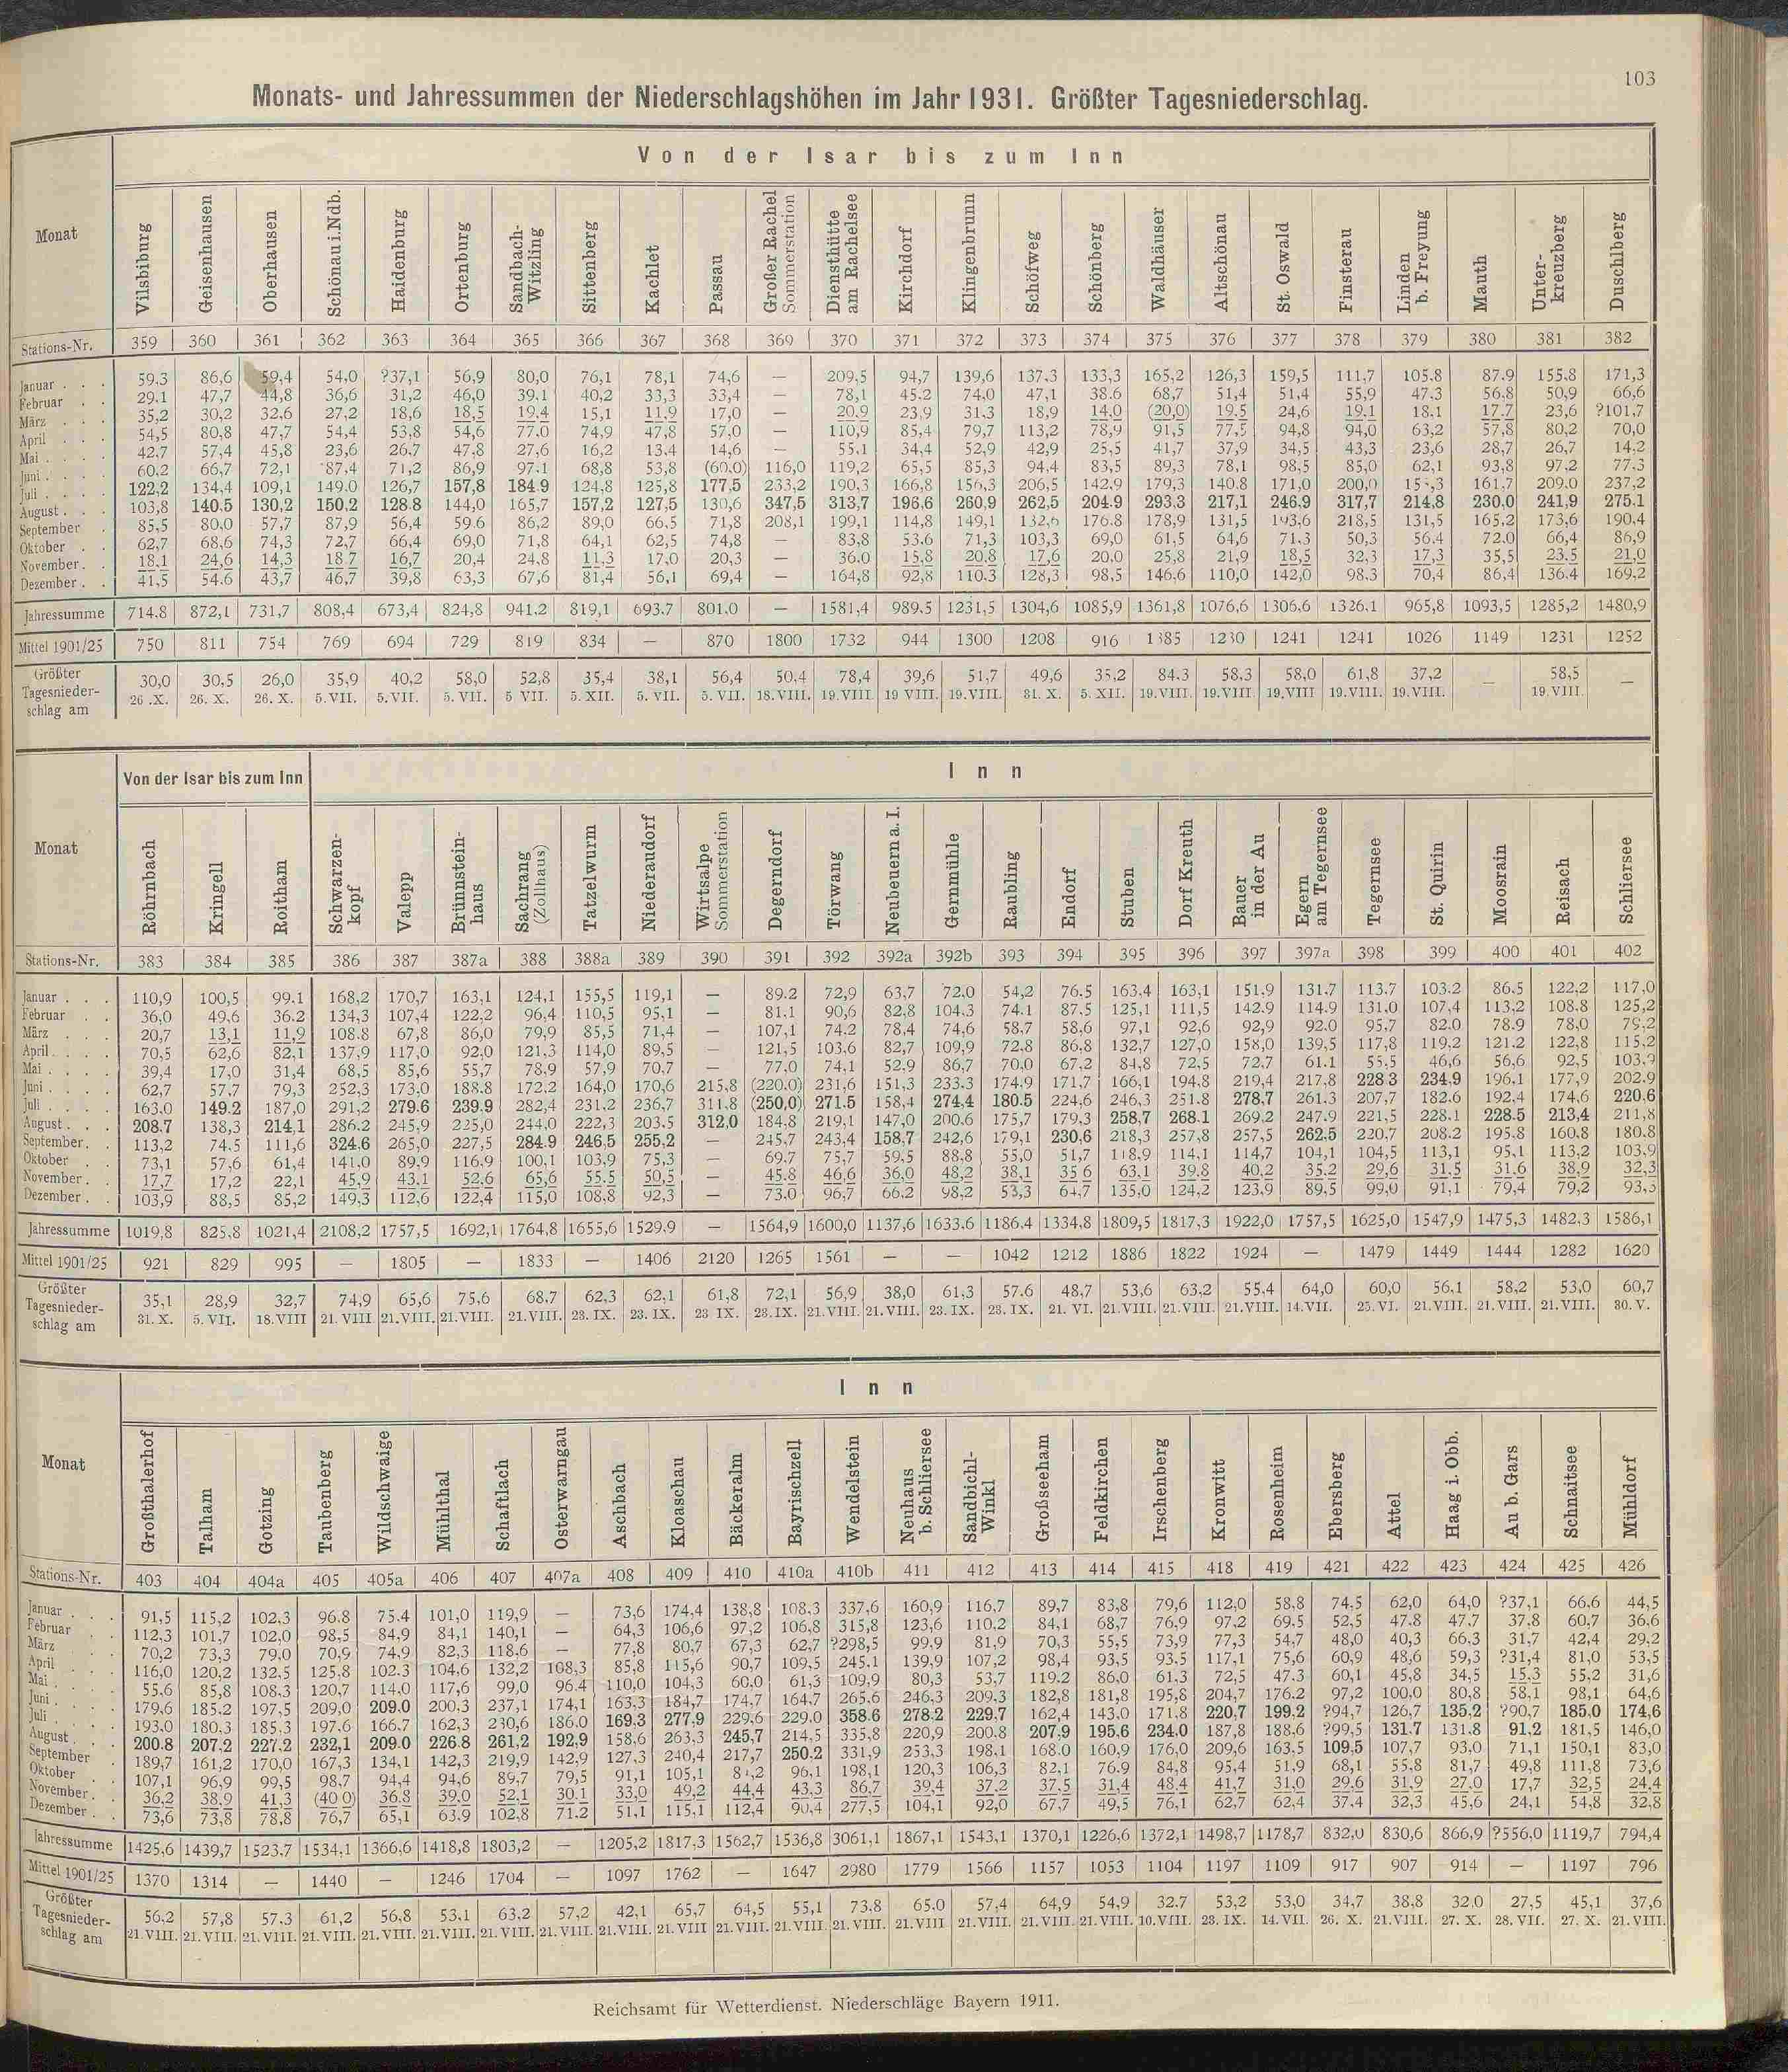 103
Monats- und Jahressummen der Niederschlagshöhen im Jahr 1931. Größter Tagesniederschlag.
Von der Isar bis zum Inn
Monat Vilsbiburg Geisenhausen Oberhausen Schönau i. Ndb. Haidenburg Ortenburg Sandbach-Witzling Sittenberg Kachlet Passau Großer Rachel Sommerstation Diensthütte am Rachelsee Kirchdorf Klingenbrunn Schöfweg Schönberg Waldhäuser Altschönau St. Oswald Finsterau Linden b. Freyung Mauth Unter-kreuzberg Duschlberg
Stations-Nr. 359 360 361 362 363 364 365 366 367 368 369 370 371 372 373 374 375 376 377 378 379 380 381 382
Januar . . . 59.3 86,6 59,4 54,0 ?37,1 56,9 80,0 76,1 78,1 74,6 — 209,5 94,7 139,6 137.3 133,3 165,2 126,3 159,5 111,7 105.8 87.9 155.8 171,3
Februar . . 29.1 47,7 44,8 36,6 31,2 46,0 39.1 40,2 33,3 33,4 — 78,1 45.2 74,0 47,1 38.6 68,7 51,4 51,4 55,9 47.3 56.8 50,9 66,6
März . . . 35,2 30,2 32,6 27,2 18,6 18,5 19,4 15,1 11,9 17,0 — 20.9 23,9 31.3 18,9 14,0 (20,0) 19.5 24,6 19.1 18.1 17.7 23,6 ?101,7
April . . . 54,5 80,8 47,7 54,4 53,8 54,6 77.0 74,9 47,8 57,0 — 110,9 85,4 79,7 113,2 78,9 91,5 77,5 94,8 94,0 63,2 57,8 80,2 70,0
Mai . . . . 42.7 57,4 45,8 23,6 26.7 47,8 27,6 16,2 13,4 14,6 — 55.1 34,4 52,9 42,9 25,5 41,7 37,9 34,5 43,3 23,6 28,7 26,7 14,2
Juni . . . . 60.2 66,7 72,1 87,4 71,2 86,9 97.1 68,8 53,8 (60.0) 116,0 119,2 65,5 85,3 94.4 83,5 89,3 78,1 98,5 85,0 62,1 93,8 97,2 77.3
Juli . . . . 122,2 134,4 109,1 149.0 126,7 157,8 184.9 124,8 125,8 177,5 233,2 190,3 166,8 156,3 206,5 142.9 179,3 140.8 171,0 200,0 161,7 209.0 237,2
August . . . 103,8 140.5 130,2 150.2 128.8 144,0 165,7 157,2 127,5 130,6 347,5 313,7 196,6 260,9 262,5 204.9 293.3 217,1 246.9 317,7 214,8 230.0 241,9 275.1
September . 85,5 80,0 57,7 87,9 56,4 59.6 86,2 89,0 66.5 71,8 208,1 199,1 114,8 149,1 132,6 176.8 178,9 131,5 193,6 218,5 131,5 165,2 173,6 190,4
Oktober . . 62,7 68,6 74,3 72,7 66,4 69,0 71,8 64,1 62,5 74,8 — 83,8 53.6 71,3 103,3 69,0 61,5 64,6 71.3 50,3 56.4 72.0 66,4 86,9
November . . 18.1 24,6 14,3 18.7 16,7 20,4 24,8 11,3 17,0 20,3 — 36.0 15,8 20.8 17,6 20.0 25,8 21,9 18,5 32,3 17,3 35,5 23.5 21,0
Dezember . . 41,5 54.6 43,7 46,7 39,8 63,3 67,6 81,4 56,1 69,4 — 164,8 92,8 110.3 128,3 98,5 146,6 110,0 142,0 98.3 70,4 86,4 136.4 169,2
Jahressumme 714.8 872,1 731,7 808,4 673,4 824,8 941.2 819,1 693.7 801.0 — 1581,4 989.5 1231,5 1304,6 1085,9 1361,8 1076,6 1306.6 1326.1 965,8 1093,5 1285,2 1480,9
Mittel 1901/25 750 811 754 769 694 729 819 834 — 870 1800 1732 944 1300 1208 916 1385 1230 1241 1241 1026 1149 1231 1252
Größter Tagesnieder-schlag am 30,0 30,5 26,0 35,9 40,2 58,0 52,8 35,4 38,1 56,4 50,4 78,4 39,6 51,7 49,6 35,2 84.3 58.3 58,0 61,8 37,2 — 58,5 —
26.X. 26. X. 26. X. 5.VII. 5.VII. 5.VII. 5 VII. 5.XII. 5. VII. 5. VII. 18.VIII. 19.VIII. 19 VIII. 19.VIII. 31. X. 5. XII. 19.VIII. 19.VIII. 19.VIII 19.VIII. 19.VIII. 19.VIII.
Von der Isar bis zum Inn Inn
Monat Röhrnbach Kringell Roitham Schwarzen-kopf Valepp Brünnstein-haus Sachrang (Zollhaus) Tatzelwurm Niederaudorf Wirtsalpe Sommerstation Degerndorf Törwang Neubeuern a. I. Germmühle Raubling Endorf Stuben Dorf Kreuth Bauer in der Au Egern am Tegernsee Tegernsee St. Quirin Moosrain Reisach Schliersee
Stations-Nr. 383 384 385 386 387 387a 388 388a 389 390 391 392 392a 392b 393 394 395 396 397 397a 398 399 400 401 402
Januar . . . 110,9 100,5 99.1 168,2 170,7 163,1 124,1 155,5 119,1 — 89.2 72,9 63,7 72.0 54,2 76.5 163,4 163,1 151,9 131.7 113.7 103.2 86.5 122,2 117,0
Februar . . 36,0 49,6 36.2 134,3 107,4 122,2 96,4 110,5 95,1 — 81.1 90,6 82,8 104.3 74.1 87.5 125,1 111,5 142.9 114.9 131.0 107,4 113,2 108.8 125,2
März . . . 20,7 13,1 11,9 108.8 67,8 86,0 79,9 85,5 71,4 — 107,1 74.2 78,4 74,6 58.7 58,6 97,1 92,6 92,9 92.0 95.7 82.0 78.9 78,0 79,2
April . . . 70,5 62,6 82,1 137,9 117,0 92,0 121.3 114,0 89,5 — 121,5 103,6 82,7 109,9 72,8 86,8 132,7 127,0 158,0 139,5 117,8 119,2 121.2 122,8 115,2
Mai . . . . 39,4 17,0 31,4 68,5 85,6 55,7 78,9 57,9 70.7 — 77,0 74,1 52.9 86,7 70,0 67,2 84,8 72,5 72.7 61.1 55,5 46,6 56,6 92,5 103.9
Juni . . . . 62,7 57,7 79,3 252,3 173,0 188.8 172.2 164,0 170,6 215,8 (220.0) 231,6 151,3 233.3 174.9 171,7 166,1 194,8 219,4 217,8 228.3 234.9 196,1 177,9 202.9
Juli . . . . 163.0 149.2 187,0 291,2 279.6 239.9 282,4 231.2 236,7 311,8 (250,0) 271.5 158,4 274,4 180.5 224,6 246,3 251.8 278,7 261.3 207,7 182.6 192,4 174,6 220.6
August . . . 208.7 138,3 214,1 286.2 245,9 225,0 244,0 222,3 203.5 312,0 184,8 219,1 147,0 200.6 175,7 179,3 258,7 268.1 269,2 247.9 221,5 228.1 228.5 213,4 211,8
September . 113,2 74.5 111,6 324.6 265,0 227,5 284.9 246,5 255,2 — 245,7 243,4 158,7 242,6 179,1 230,6 218,3 257,8 257,5 262,5 220,7 208.2 195.8 160.8 180.8
Oktober . . 73,1 57,6 61,4 141,0 89,9 116,9 100,1 103,9 75,3 — 69.7 75,7 59.5 88.8 55,0 51,7 118.9 114,1 114,7 104,1 104,5 113,1 95,1 113,2 103.9
November . . 17,7 17,2 22,1 45,9 43,1 52,6 65,6 55.5 50,5 — 45.8 46,6 36,0 48,2 38,1 35 6 63,1 39,8 40,2 35.2 29,6 31,5 31.6 38,9 32,3
Dezember . . 103,9 88,5 85,2 149,3 112,6 122,4 115,0 108,8 92,3 — 73.0 96,7 66.2 98,2 53,3 64,7 135,0 124,2 123,9 89,5 99,0 91,1 79,4 79,2 93,5
Jahressumme 1019,8 825,8 1021,4 2108,2 1757,5 1692,1 1764,8 1655,6 1529,9 — 1564,9 1600,0 1137,6 1633.6 1186,4 1334,8 1809,5 1817,3 1922,0 1757,5 1625,0 1547,9 1475,3 1482,3 1586,1
Mittel 1901/25 921 829 995 — 1805 — 1833 — 1406 2120 1265 1561 — — 1042 1212 1886 1822 1924 — 1479 1449 1444 1282 1620
Größter Tagesnieder-schlag am 35,1 28,9 32,7 74,9 65,6 75,6 68.7 62,3 62,1 61,8 72,1 56,9 38,0 61,3 57.6 48,7 53,6 63,2 55.4 64,0 60,0 56,1 58,2 53,0 60,7
31. X. 5. VII. 18.VIII 21. VIII 21.VIII. 21.VIII. 21.VIII. 23. IX. 23. IX. 23 IX. 23.IX. 21.VIII. 21.VIII. 23. IX. 23. IX. 21. VI. 21.VIII. 21.VIII. 21.VIII. 14.VII. 25.VI. 21.VIII. 21.VIII. 21.VIII. 30. V.
Inn
Monat Großthalerhof Talham Gotzing Taubenberg Wildschwaige Mühlthal Schaftlach Osterwarngau Aschbach Kloaschau Bäckeralm Bayrischzell Wendelstein Neuhaus b. Schliersee Sandbichl-Winkl Großseeham Feldkirchen Irschenberg Kronwitt Rosenheim Ebersberg Attel Haag i. Obb. Au b. Gars Schnaitsee Mühldorf
Stations-Nr. 403 404 404a 405 405a 406 407 407a 408 409 410 410a 410b 411 412 413 414 415 418 419 421 422 423 424 425 426
Januar . . . 91,5 115,2 102,3 96.8 75.4 101,0 119,9 — 73,6 174,4 138,8 108,3 337,6 160,9 116,7 89,7 83,8 79,6 112,0 58.8 74,5 62,0 64,0 ?37,1 66,6 44,5
Februar . . 112,3 101,7 102,0 98,5 84,9 84,1 140,1 — 64,3 106,6 97,2 106,8 315,8 123,6 110,2 84,1 68,7 76,9 97,2 69.5 52,5 47.8 47.7 37,8 60,7 36,6
März . . . 70,2 73,3 79.0 70,9 74,9 82,3 118,6 — 77,8 80,7 67,3 62,7 ?298,5 99,9 81,9 70,3 55,5 73,9 77,3 54,7 48,0 40,3 66.3 31,7 42,4 29,2
April . . . 116,0 120,2 132.5 125,8 102.3 104,6 132,2 108,3 85,8 115,6 90,7 109,5 245.1 139,9 107,2 98,4 93,5 93.5 117,1 75,6 60,9 48,6 59,3 ?31,4 81,0 53,5
Mai . . . . 55.6 85,8 108.3 120,7 114,0 117,6 99,0 96.4 110,0 104,3 60.0 61,3 109,9 80,3 53,7 119.2 86,0 61,3 72,5 47.3 60,1 45,8 34,5 15.3 55,2 31,6
Juni . . . . 179,6 185.2 197,5 209,0 209.0 200.3 237,1 174,1 163,3 184,7 174,7 164.7 265.6 246,3 209.3 182,8 181,8 195,8 204,7 176.2 97,2 100,0 80,8 58,1 98,1 64,6
Juli . . . . 193.0 180.3 185.3 197.6 166.7 162,3 230,6 186.0 169,3 277,9 229,6 229.0 358.6 278.2 229,7 162,4 143.0 171,8 220,7 199.2 ?94,7 126,7 135,2 ?90,7 185,0 174,6
August . . . 200.8 207,2 227,2 232,1 209.0 226.8 261,2 192,9 158,6 263,3 245,7 214,5 335,8 220,9 200.8 207,9 195.6 234.0 187,8 188.6 ?99,5 131.7 131.8 91,2 181,5 146,0
September . 189,7 161,2 170,0 167,3 134,1 142,3 219,9 142,9 127,3 240,4 217,7 250.2 331,9 253,3 198,1 168.0 160,9 176,0 209,6 163,5 109,5 107,7 93,0 71,1 150,1 83,0
Oktober . . 107,1 96,9 99,5 98.7 94,4 94,6 89,7 79,5 91,1 105,1 96,1 198,1 120,3 106,3 82,1 76.9 84,8 95,4 51,9 68,1 55,8 81,7 49,8 111,8 73,6
November . . 36,2 38,9 41,3 (40 0) 36.8 39,0 52,1 30,1 33,0 49,2 44,4 43,3 86,7 39,4 37.2 37,5 31,4 48.4 41,7 31,0 29,6 31,9 27,0 17,7 32,5 24,4
Dezember . . 73,6 73,8 78,8 76,7 65,1 63.9 102,8 71.2 51,1 115,1 112,4 90,4 277,5 104,1 92,0 67,7 49,5 76,1 62,7 62,4 37,4 32,3 45,6 24,1 54,8 32,8
Jahressumme 1425,6 1439,7 1523.7 1534,1 1366,6 1418,8 1803,2 — 1205,2 1817,3 1562,7 1536,8 3061,1 1867,1 1543,1 1370,1 1226,6 1372,1 1498,7 1178,7 832,0 830,6 866,9 ?556,0 1119,7 794,4
Mittel 1901/25 1370 1314 — 1440 — 1246 1704 — 1097 1762 — 1647 2980 1779 1566 1157 1053 1104 1197 1109 917 907 914 — 1197 796
Größter Tagesnieder-schlag am 56,2 57,8 57.3 61,2 56,8 53,1 63,2 57,2 42,1 65,7 64,5 55,1 73.8 65.0 57,4 64,9 54,9 32.7 53,2 53,0 34,7 38,8 32.0 27,5 45,1 37,6
21.VIII. 21.VIII. 21.VIII. 21.VIII. 21.VIII. 21.VIII. 21.VIII. 21.VIII. 21.VIII. 21.VIII 21.VIII. 21.VIII. 21.VIII. 21.VIII 21.VIII. 21.VIII. 21.VIII. 10.VIII. 23. IX. 14.VII. 26. X. 21.VIII. 27. X. 28. VII. 27. X. 21.VIII.
Reichsamt für Wetterdienst. Niederschläge Bayern 1911.